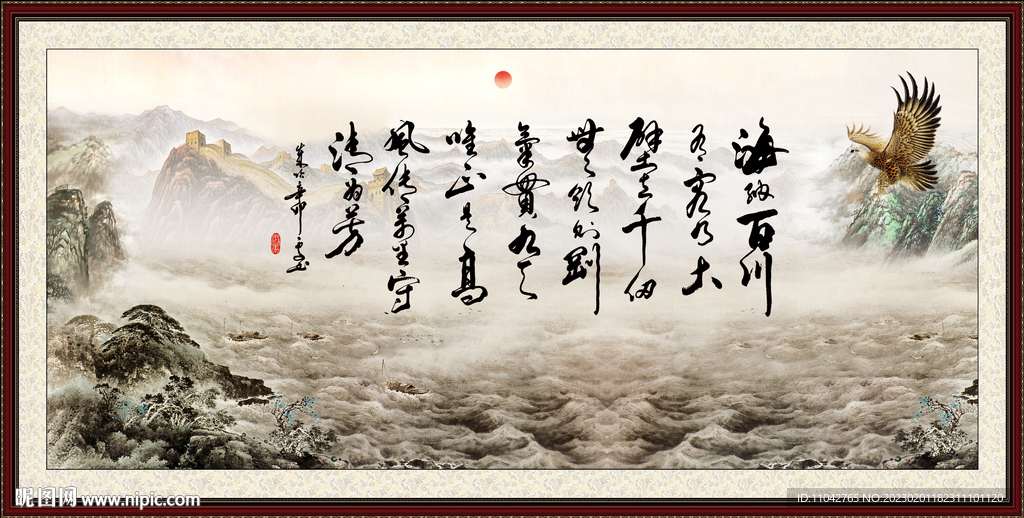 海納百川
有容乃大
壁立千仞
無欲则剛
氣貫九天
唯正是高
風传萬里守
清为芳
昵图网 www.nipic.com
ID:11042765 NO:20230201182311101120